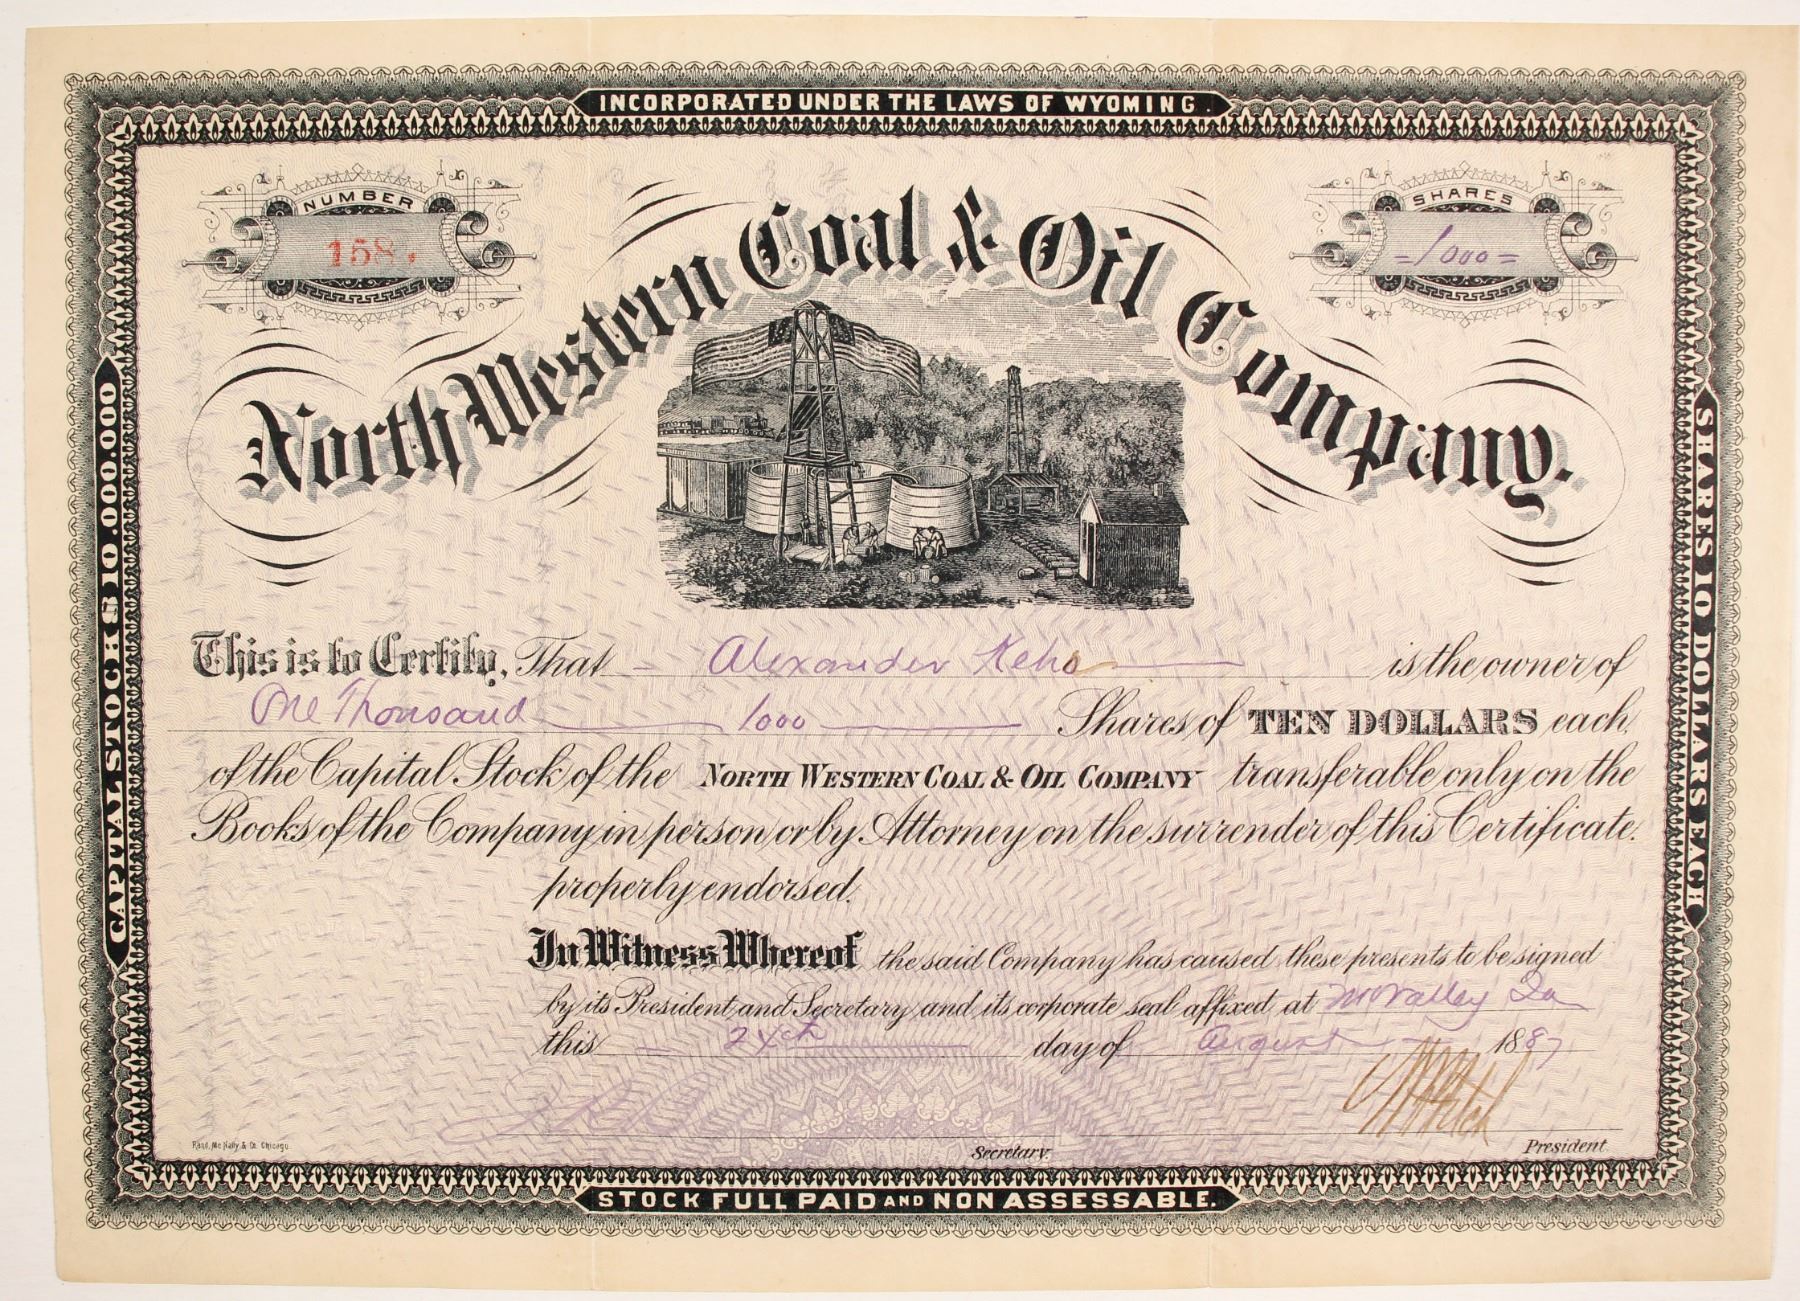 INCORPORATED UNDER THE LAWS OF WYOMING.
NUMBER
158.
SHARES
=1000=
North Western Coal & Oil Company.
CAPITAL STOCK $10.000.000
SHARES 10 DOLLARS EACH
This is to Certify, That Alexander Keho is the owner of
One Thousand 1000 Shares of TEN DOLLARS each
of the Capital Stock of the NORTH WESTERN COAL & OIL COMPANY transferable only on the
Books of the Company in person or by Attorney on the surrender of this Certificate.
properly endorsed.
In Witness Whereof the said Company has caused these presents to be signed
by its President and Secretary and its corporate seal affixed at Mo Valley Ia
this 24th day of August 1887
Rand, McNally & Co. Chicago.
Secretary.
President
STOCK FULL PAID AND NON ASSESSABLE.